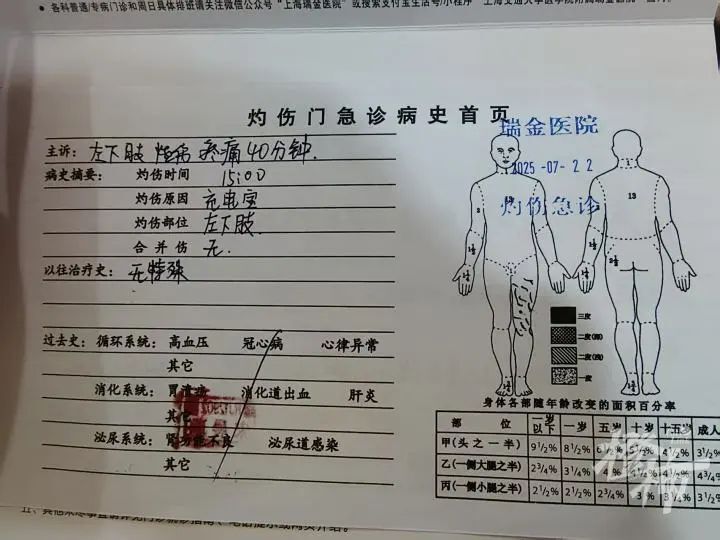 各科普通/专病门诊和周日具体排班请关注微信公众号"上海瑞金医院"或搜索支付宝生活号/小程序"上海交通大学医学院附属瑞金医院"
灼伤门急诊病史首页
瑞金医院
2025-07-22
灼伤急诊
主诉：左下肢 灼伤 疼痛40分钟.
病史摘要： 灼伤时间 15:00
灼伤原因 充电宝
灼伤部位 左下肢.
合并伤 无.
以往治疗史：无特殊
过去史：循环系统：高血压 冠心病 心律异常
其它
消化系统：胃溃疡 消化道出血 肝炎
其它
泌尿系统：肾功能不良 泌尿道感染
其它
13
三度
二度(深)
二度(浅)
一度
身体各部随年龄改变的面积百分率
部 位 一岁以下 一岁 五岁 十岁 十五岁 成人
甲(头之一半) 9½% 8½% 6½% 5½% 4½% 3½%
乙(一侧大腿之半) 2¾% 3¼% 4% 4½% 4¾%
丙(一侧小腿之半) 2½% 2½% 2¾% 3% 3¼% 3½%